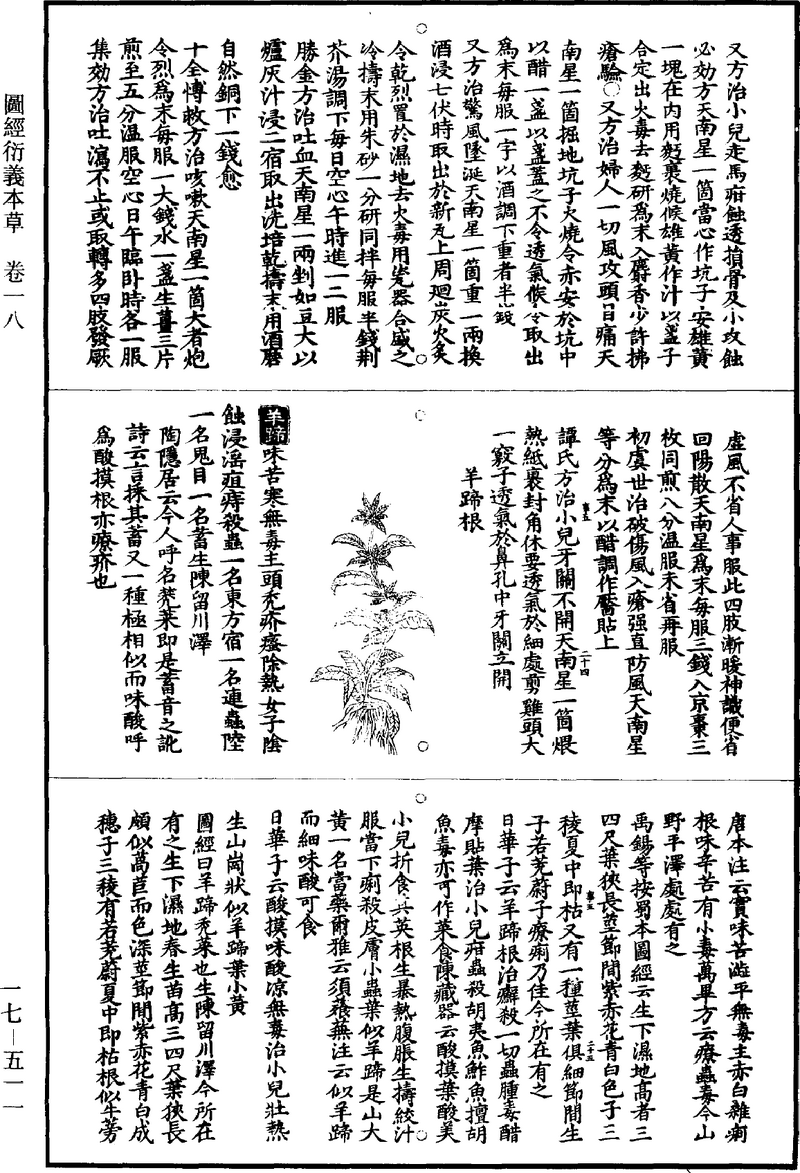 圖經衍義本草　卷一八
又方治小兒走馬疳蝕透損骨及小攻蝕
必効方天南星一箇當心作坑子安雄黃
一塊在內用麪裹燒候雄黃作汁以盞子
合定出火毒去麪研爲末入麝香少許拂
瘡驗○又方治婦人一切風攻頭目痛天
南星一箇掘地坑子火燒令赤安於坑中
以醋一盞以盞蓋之不令透氣候冷取出
爲末每服一字以酒調下重者半錢
又方治驚風墜涎天南星一箇重一兩換
酒浸七伏時取出於新瓦上周廻炭火炙
令乾烈置於濕地去火毒用瓷器合盛之
冷擣末用朱砂一分研同拌每服半錢荆
芥湯調下每日空心午時進一二服
勝金方治吐血天南星一兩剉如豆大以
爐灰汁浸二宿取出洗焙乾擣末用酒磨
自然銅下一錢愈
十全博救方治咳嗽天南星一箇大者炮
令烈爲末每服一大錢水一盞生薑三片
煎至五分溫服空心日午臨卧時各一服
集効方治吐瀉不止或取轉多四肢發厥
虛風不省人事服此四肢漸暖神識便省
回陽散天南星爲末每服三錢入京棗三
枚同煎八分溫服未省再服
初虞世治破傷風入瘡强直防風天南星
等分爲末以醋調作靨貼上
譚氏方治小兒牙關不開天南星一箇煨
熱紙裹封角休要透氣於細處剪雞頭大
一竅子透氣於鼻孔中牙關立開
羊蹄根
羊蹄味苦寒無毒主頭禿疥瘙除熱女子陰
蝕浸淫疽痔殺蟲一名東方宿一名連蟲陸
一名鬼目一名蓄生陳留川澤
陶隱居云今人呼名禿菜即是蓄音之訛
詩云言採其蓄又一種極相似而味酸呼
爲酸摸根亦療疥也
唐本注云實味苦澁平無毒主赤白雜痢
根味辛苦有小毒萬畢方云療蟲毒今山
野平澤處處有之
禹錫等按蜀本圖經云生下濕地高者三
四尺葉狹長莖節間紫赤花青白色子三
稜夏中即枯又有一種莖葉俱細節間生
子若茺蔚子療痢乃佳今所在有之
日華子云羊蹄根治癬殺一切蟲腫毒醋
摩貼葉治小兒疳蟲殺胡夷魚鮓魚擅胡
魚毒亦可作菜食陳藏器云酸摸葉酸美
小兒折食其英根生暴熱腹脹生擣絞汁
服當下痢殺皮膚小蟲葉似羊蹄是山大
黃一名當藥爾雅云須蕵蕪注云似羊蹄
而細味酸可食
日華子云酸摸味酸凉無毒治小兒壯熱
生山崗狀似羊蹄葉小黃
圖經曰羊蹄禿菜也生陳留川澤今所在
有之生下濕地春生苗高三四尺葉狹長
頗似萵苣而色深莖節間紫赤花青白成
穗子三稜有若茺蔚夏中即枯根似牛蒡
一七—五一一